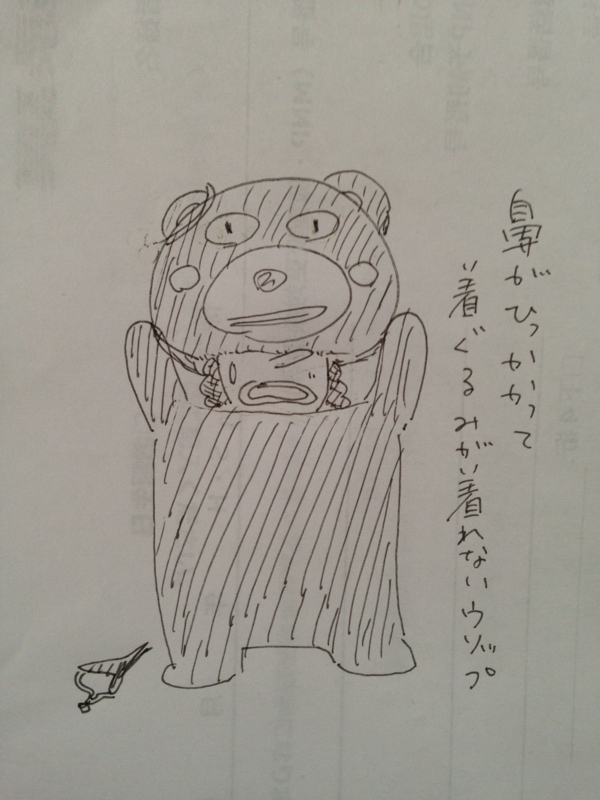 鼻がひっかかって
着ぐるみが着れないウソップ